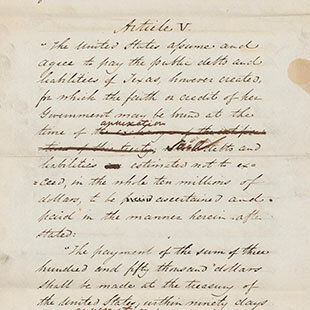 Article V
"The United States assume and
agree to pay the public debts and
liabilities of Texas, however created,
for which the faith or credit of her
Government may be bound at the
annexation
time of the exchange of the
tion of this treaty, said debts and
liabilities estimated not to ex-
-ceed, in the whole ten millions of
dollars, to be ascertained and
paid in the manner herein after
stated:
"The payment of the sum of three
hundred and fifty thousand dollars
shall be made at the treasury of
the United States, within ninety days